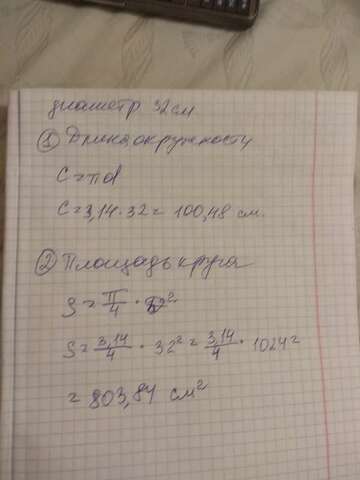 диаметр 32 см
① Длина окружности
C = πd
C = 3,14 · 32 = 100,48 см.
② Площадь круга
S = π/4 · d²
S = 3,14/4 · 32² = 3,14/4 · 1024 =
= 803,84 см²